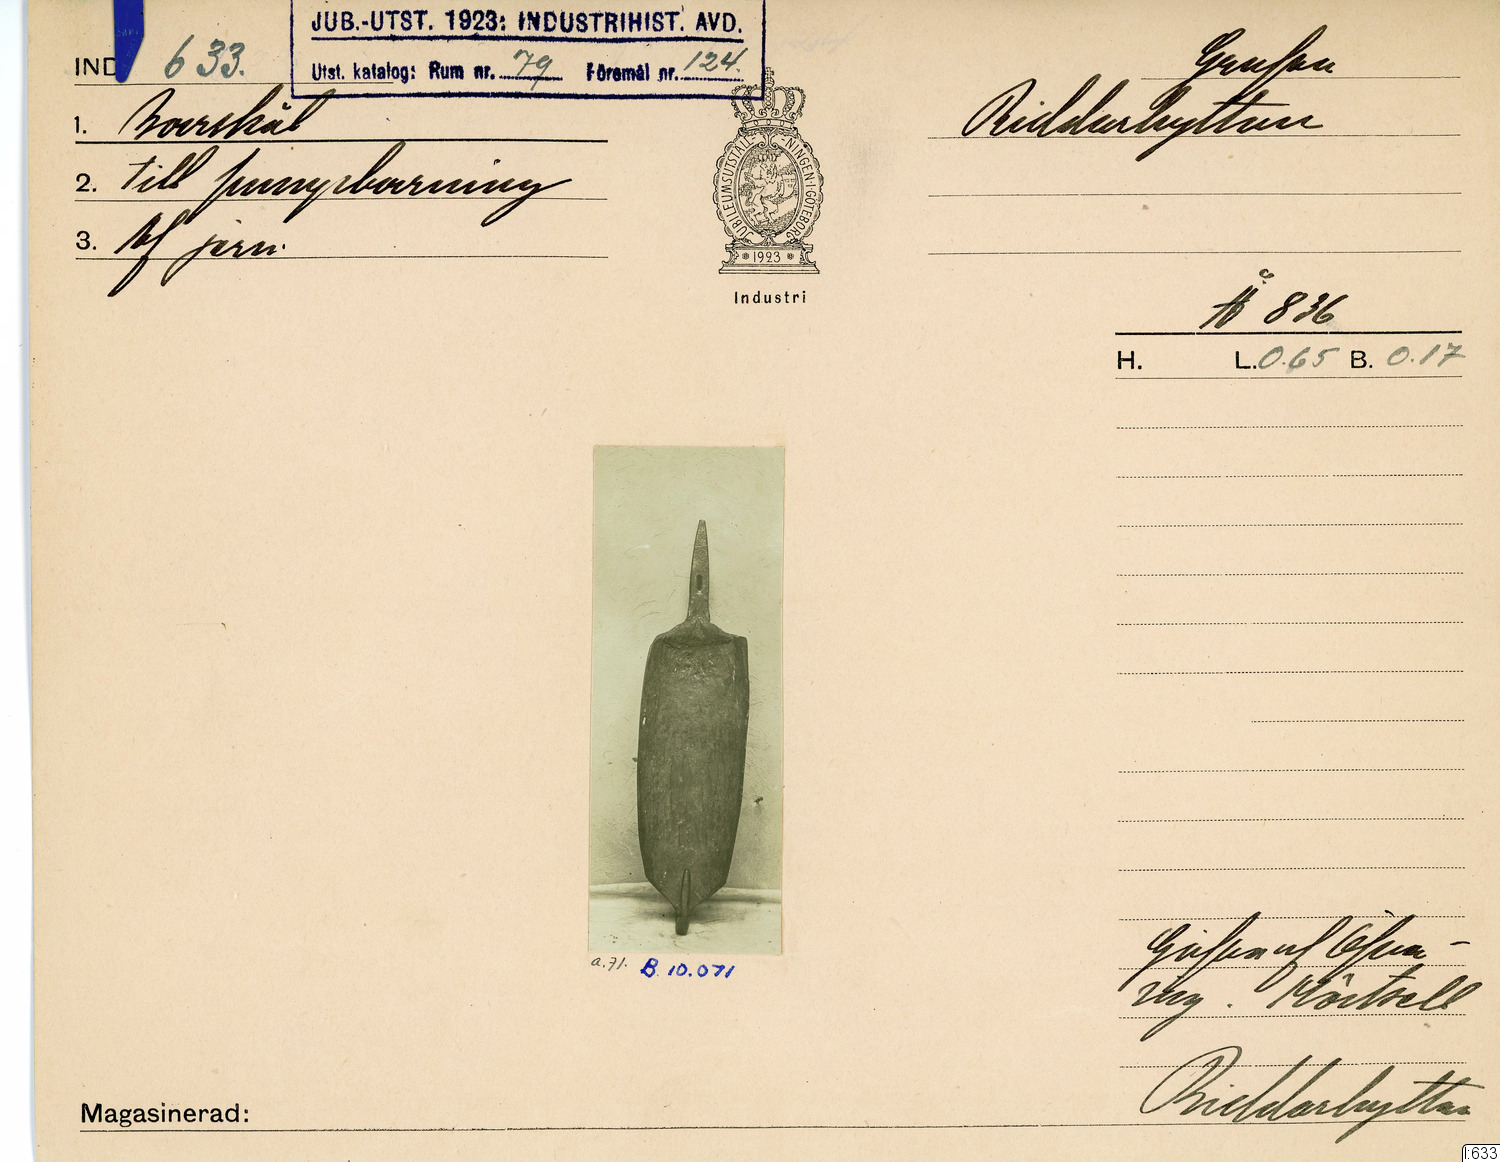 JUB.-UTST. 1923: INDUSTRIHIST. AVD.
Utst. katalog: Rum nr. 79 Föremål nr. 124.
IND 633.
1. Borrskål
2. till pumpborrning
3. Af järn.
JUBILEUMSUTSTÄLLNINGEN I GÖTEBORG
1923
Industri
Grufan
Riddarhyttan
Å 836
H. L. 0.65 B. 0.17
a.71. B. 10.071
Gåfva af Öfver-
ing. Mörtsell
Riddarhyttan
Magasinerad:
I:633